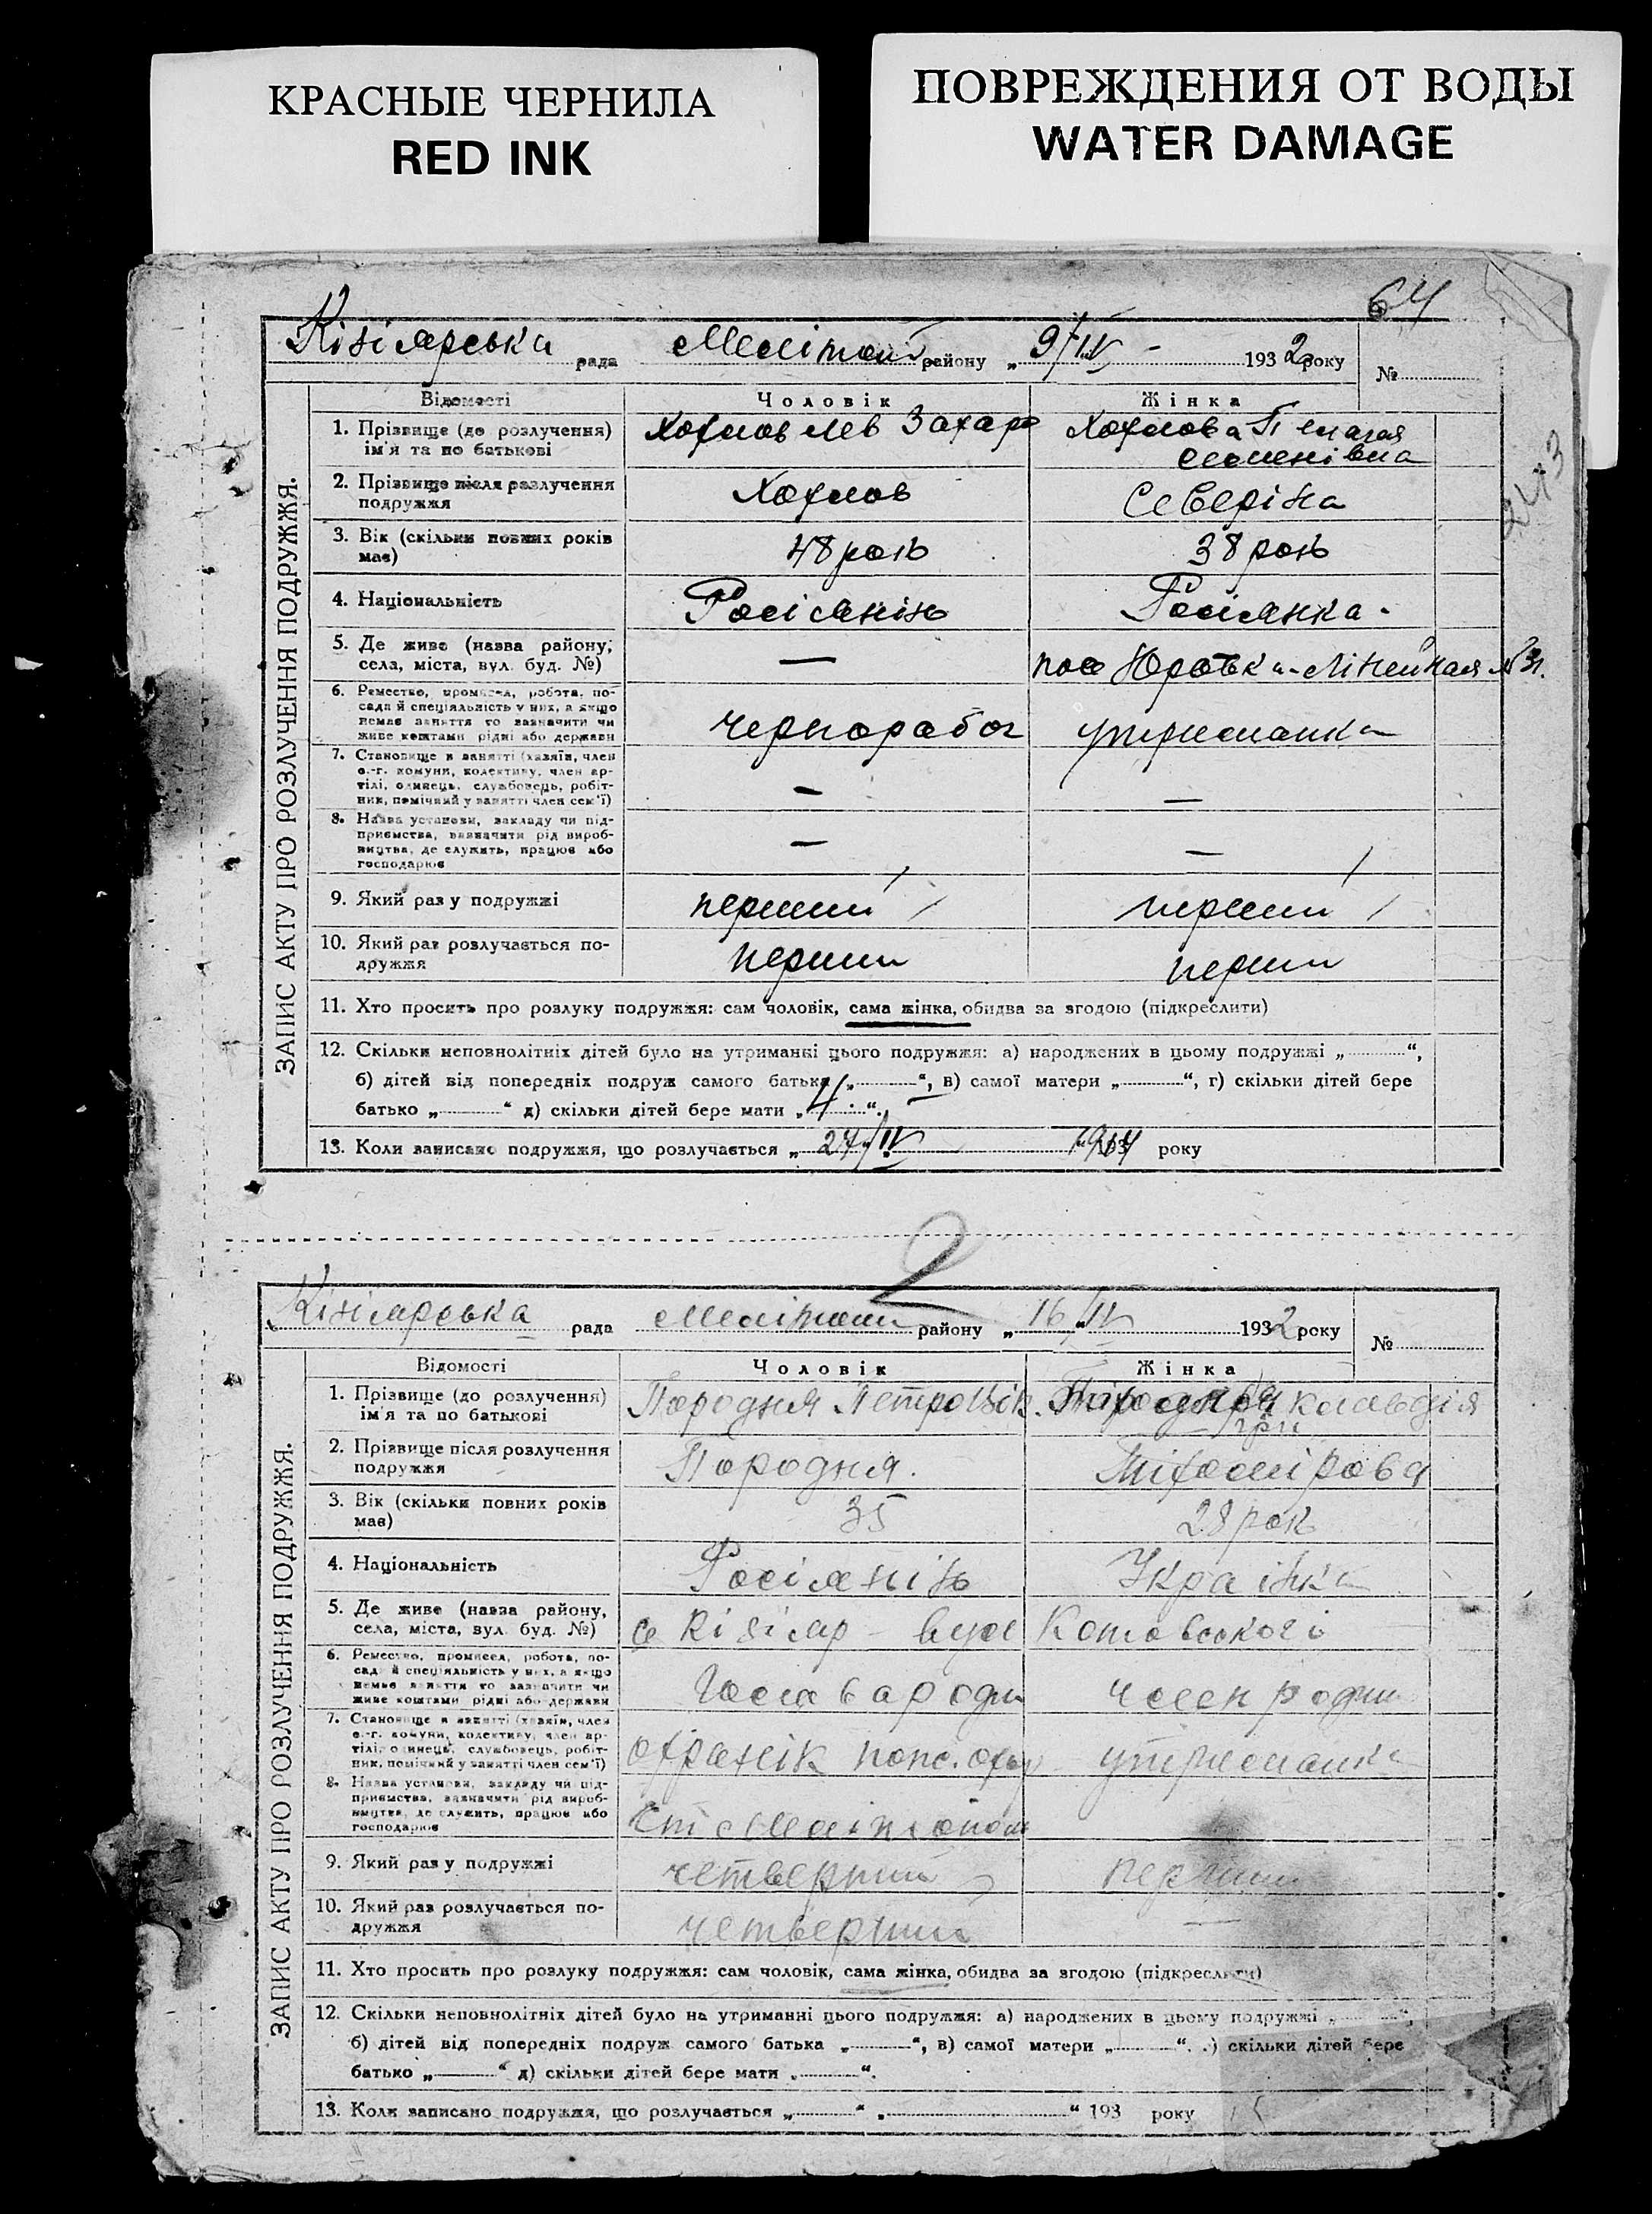 КРАСНЫЕ ЧЕРНИЛА
RED INK
ПОВРЕЖДЕНИЯ ОТ ВОДЫ
WATER DAMAGE
64
Кізіярська рада Меліт району „ 9/IV - 1932 року №
ЗАПИС АКТУ ПРО РОЗЛУЧЕННЯ ПОДРУЖЖЯ.
Відомості Чоловік Жінка
1. Прізвище (до розлучення) ім'я та по батькові
Хохлов Лев Захаро
Хохлова Пелагея
Семенівна
2. Прізвище після розлучення подружжя
Хохлов
Северіна
3. Вік (скільки повних років має)
48 рокъ
38 рокъ
4. Національність
Росіянінъ
Росіянка.
5. Де живе (назва району, села, міста, вул. буд. №)
—
пос Юровка Лінейная №31.
6. Ремество, промисел, робота, посада й спеціяльність у них, а якщо немає заняття то зазначити чи живе коштами рідні або держави
чернорабоч
утриманка
7. Становище в занятті (хазяїн, член с.-г. комуни, колективу, член артілі, одинець, службовець, робітник, помічний у занятті член сем'ї)
—
—
8. Назва установи, закладу чи підприємства, зазначити рід виробництва, де служить, працює або господарює
—
—
9. Який раз у подружжі
перший
перший
10. Який раз розлучається подружжя
перши
перши
11. Хто просить про розлуку подружжя: сам чоловік, сама жінка, обидва за згодою (підкреслити)
12. Скільки неповнолітніх дітей було на утриманні цього подружжя: а) народжених в цьому подружжі „ “,
б) дітей від попередніх подруж самого батька „ “, в) самої матери „ “, г) скільки дітей бере
батько „ “ д) скільки дітей бере мати „ 4 “.
13. Коли записано подружжя, що розлучається „ 27/IV 1914 року
2
Кізіярська рада Меліт району „ 16/IV 1932 року №
ЗАПИС АКТУ ПРО РОЗЛУЧЕННЯ ПОДРУЖЖЯ.
Відомості Чоловік Жінка
1. Прізвище (до розлучення) ім'я та по батькові
Породня Петро
Клавдія
2. Прізвище після розлучення подружжя
Породня.
Тіхомірова
3. Вік (скільки повних років має)
35
28 рок
4. Національність
Росіянінъ
Українка
5. Де живе (назва району, села, міста, вул. буд. №)
с Кізіяр – вул Котовського
6. Ремество, промисел, робота, посада й спеціяльність у них, а якщо немає заняття то зазначити чи живе коштами рідні або держави
Голова родин
член родин
7. Становище в занятті (хазяїн, член с.-г. комуни, колективу, член артілі, одинець, службовець, робітник, помічний у занятті член сем'ї)
охранік
утриманка
8. Назва установи, закладу чи підприємства, зазначити рід виробництва, де служить, працює або господарює
ст Мелітопол
9. Який раз у подружжі
четвертий
перший
10. Який раз розлучається подружжя
четвертий
—
11. Хто просить про розлуку подружжя: сам чоловік, сама жінка, обидва за згодою (підкреслити)
12. Скільки неповнолітніх дітей було на утриманні цього подружжя: а) народжених в цьому подружжі „ “,
б) дітей від попередніх подруж самого батька „ “, в) самої матери „ “. г) скільки дітей бере
батько „ “ д) скільки дітей бере мати „ “.
13. Коли записано подружжя, що розлучається „ “ „ “ 193 року